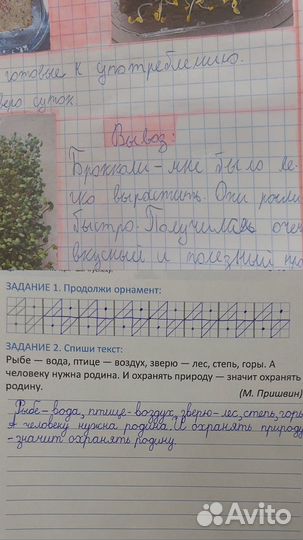 готовые к употреблению.
суток
Вывоз:
Брокколи - мне было ле-
гко вырастить. Они росли
быстро. Получился очен
вкусный и полезный
ЗАДАНИЕ 1. Продолжи орнамент:
ЗАДАНИЕ 2. Спиши текст:
Рыбе — вода, птице — воздух, зверю — лес, степь, горы. А
человеку нужна родина. И охранять природу — значит охранять
родину.
(М. Пришвин)
Рыбе-вода, птице-воздух, зверю-лес, степь, горы
А человеку нужна родина. И охранять природу
-значит охранять родину.
Avito